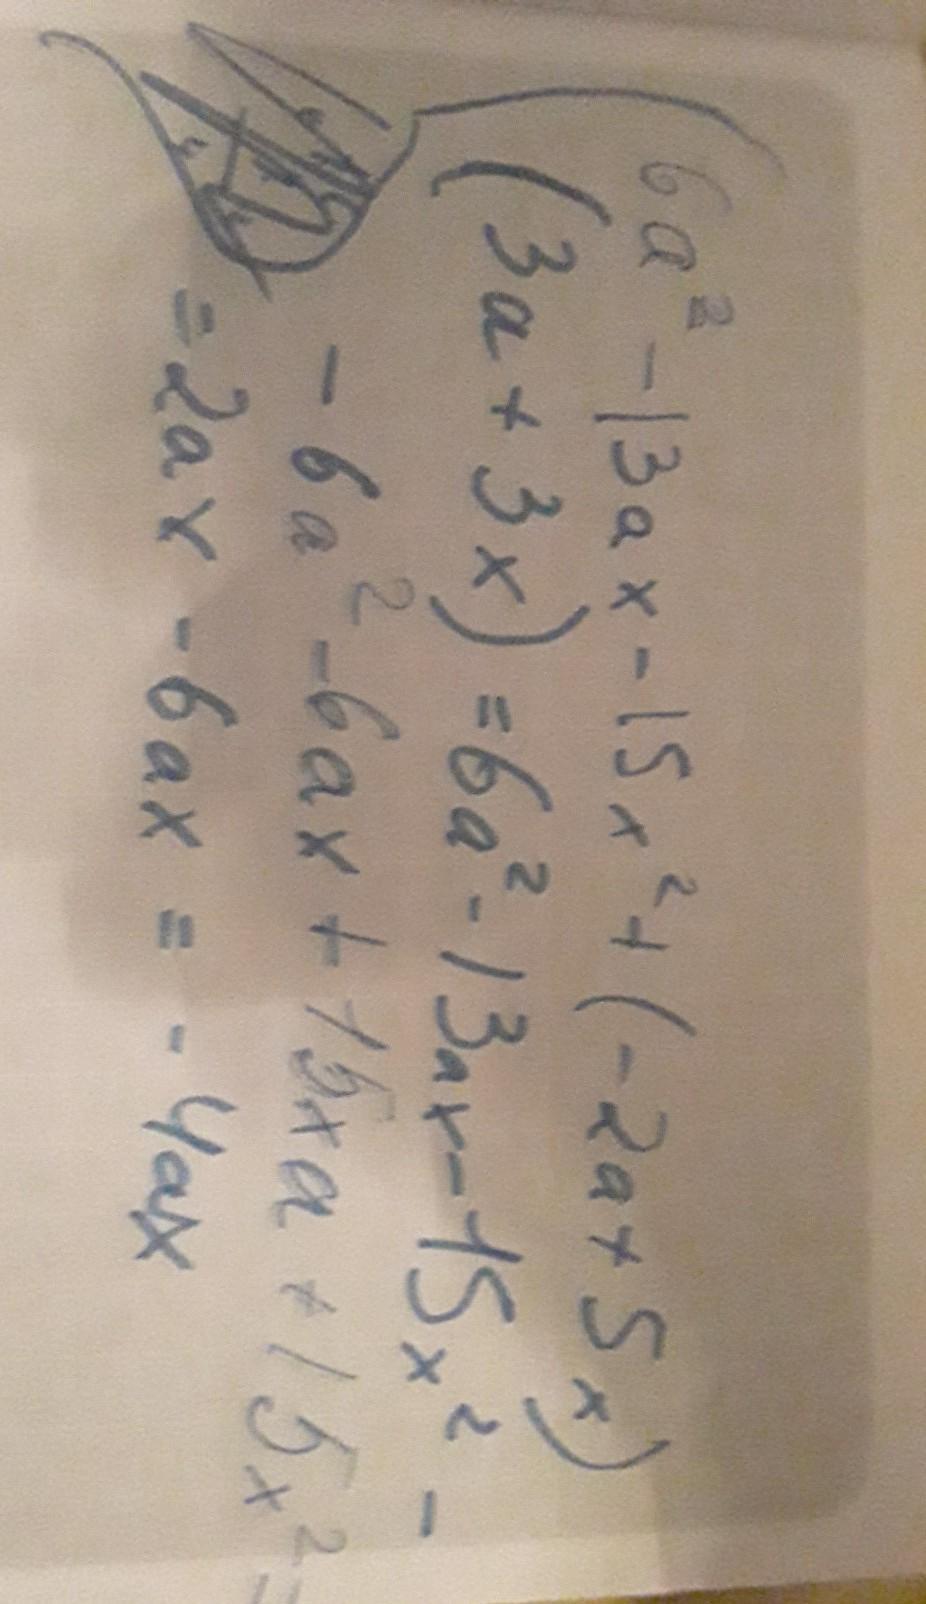 6a² - 13ax - 15x² + (-2a + 5x)
(3a + 3x) = 6a² - 13ax - 15x² -
- 6a² - 6ax + 15xa + 15x² =
= 2ax - 6ax = - 4ax